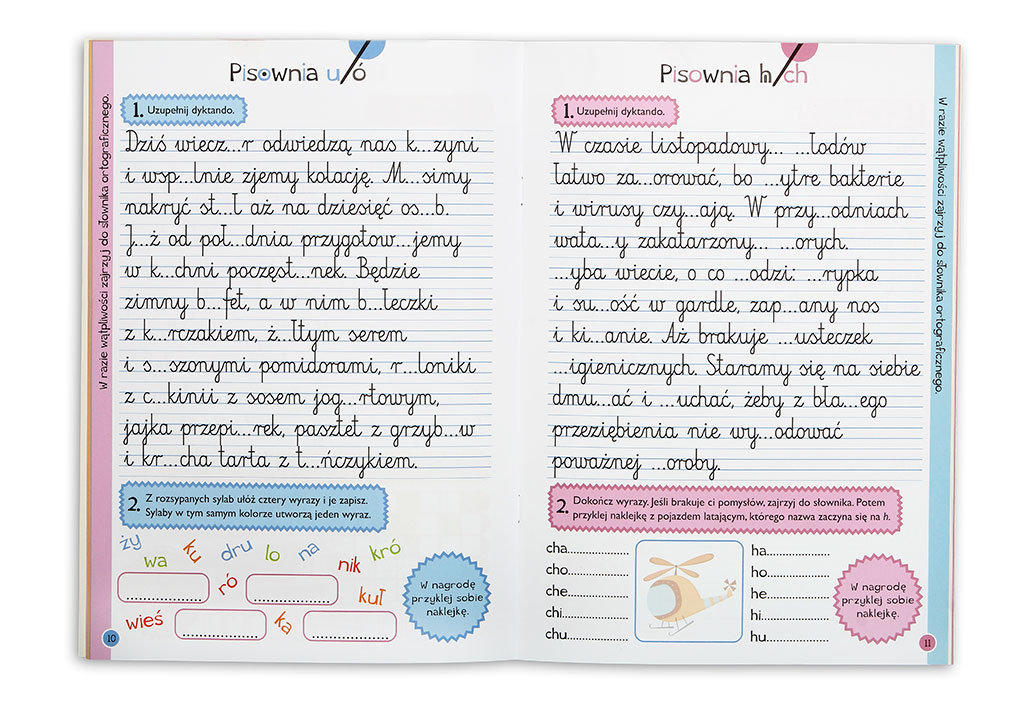 Pisownia u/ó
1. Uzupełnij dyktando.
Dziś wiecz...r odwiedzą nas k...zyni
i wsp...lnie zjemy kolację. M...simy
nakryć st...ł aż na dziesięć os...b.
J...ż od poł...dnia przygotow...jemy
w k...chni poczęst...nek. Będzie
zimny b...fet, a w nim b...łeczki
z k...rczakiem, ż...łtym serem
i s...szonymi pomidorami, r...loniki
z c...kinii z sosem jog...rtowym,
jajka przepi...rek, pasztet z grzyb...w
i kr...cha tarta z t...ńczykiem.
2. Z rozsypanych sylab ułóż cztery wyrazy i je zapisz.
Sylaby w tym samym kolorze utworzą jeden wyraz.
ży
wa
ku
dru
lo
na
nik
kró
ró
kuł
wieś
ka
W nagrodę
przyklej sobie
naklejkę.
W razie wątpliwości zajrzyj do słownika ortograficznego.
10
Pisownia h/ch
1. Uzupełnij dyktando.
W czasie listopadowy... ...łodów
łatwo za...orować, bo ...ytre bakterie
i wirusy czy...ają. W przy...odniach
wata...y zakatarzony... ...orych.
...yba wiecie, o co ...odzi: ...rypka
i su...ość w gardle, zap...any nos
i ki...anie. Aż brakuje ...usteczek
...igienicznych. Staramy się na siebie
dmu...ać i ...uchać, żeby z bła...ego
przeziębienia nie wy...odować
poważnej ...oroby.
2. Dokończ wyrazy. Jeśli brakuje ci pomysłów, zajrzyj do słownika. Potem
przyklej naklejkę z pojazdem latającym, którego nazwa zaczyna się na h.
cha................
cho................
che................
chi................
chu................
ha................
ho................
he................
hi................
hu................
W nagrodę
przyklej sobie
naklejkę.
W razie wątpliwości zajrzyj do słownika ortograficznego.
11